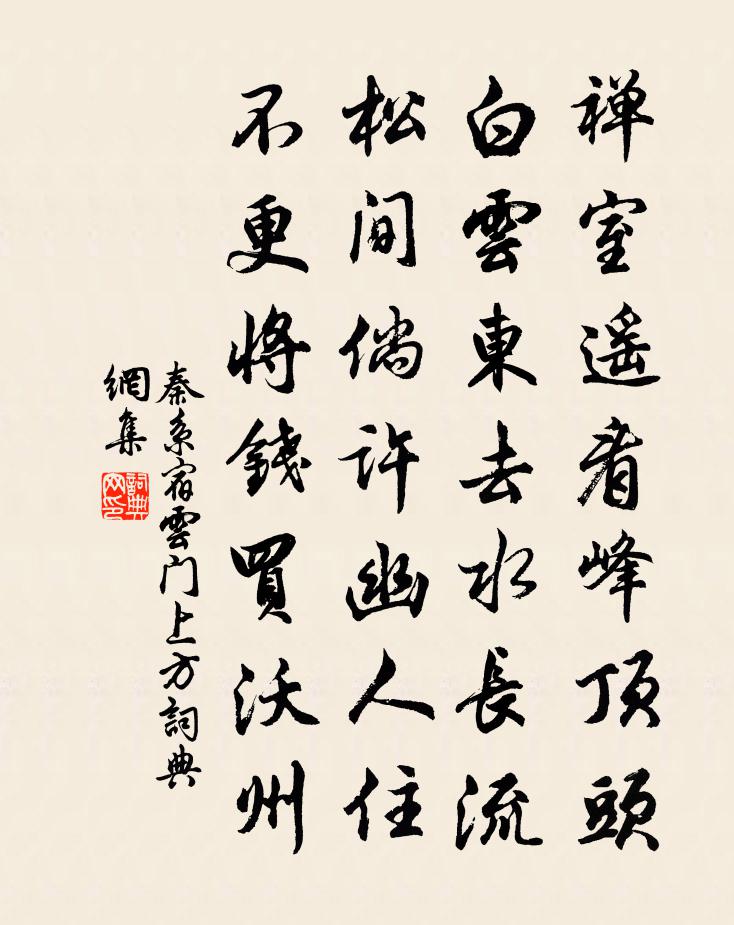 禅室遥看峰頂頭
白雲東去水長流
松間倘许幽人住
不更將錢買沃州
秦系宿雲门上方詞典
網集
詞典
网印